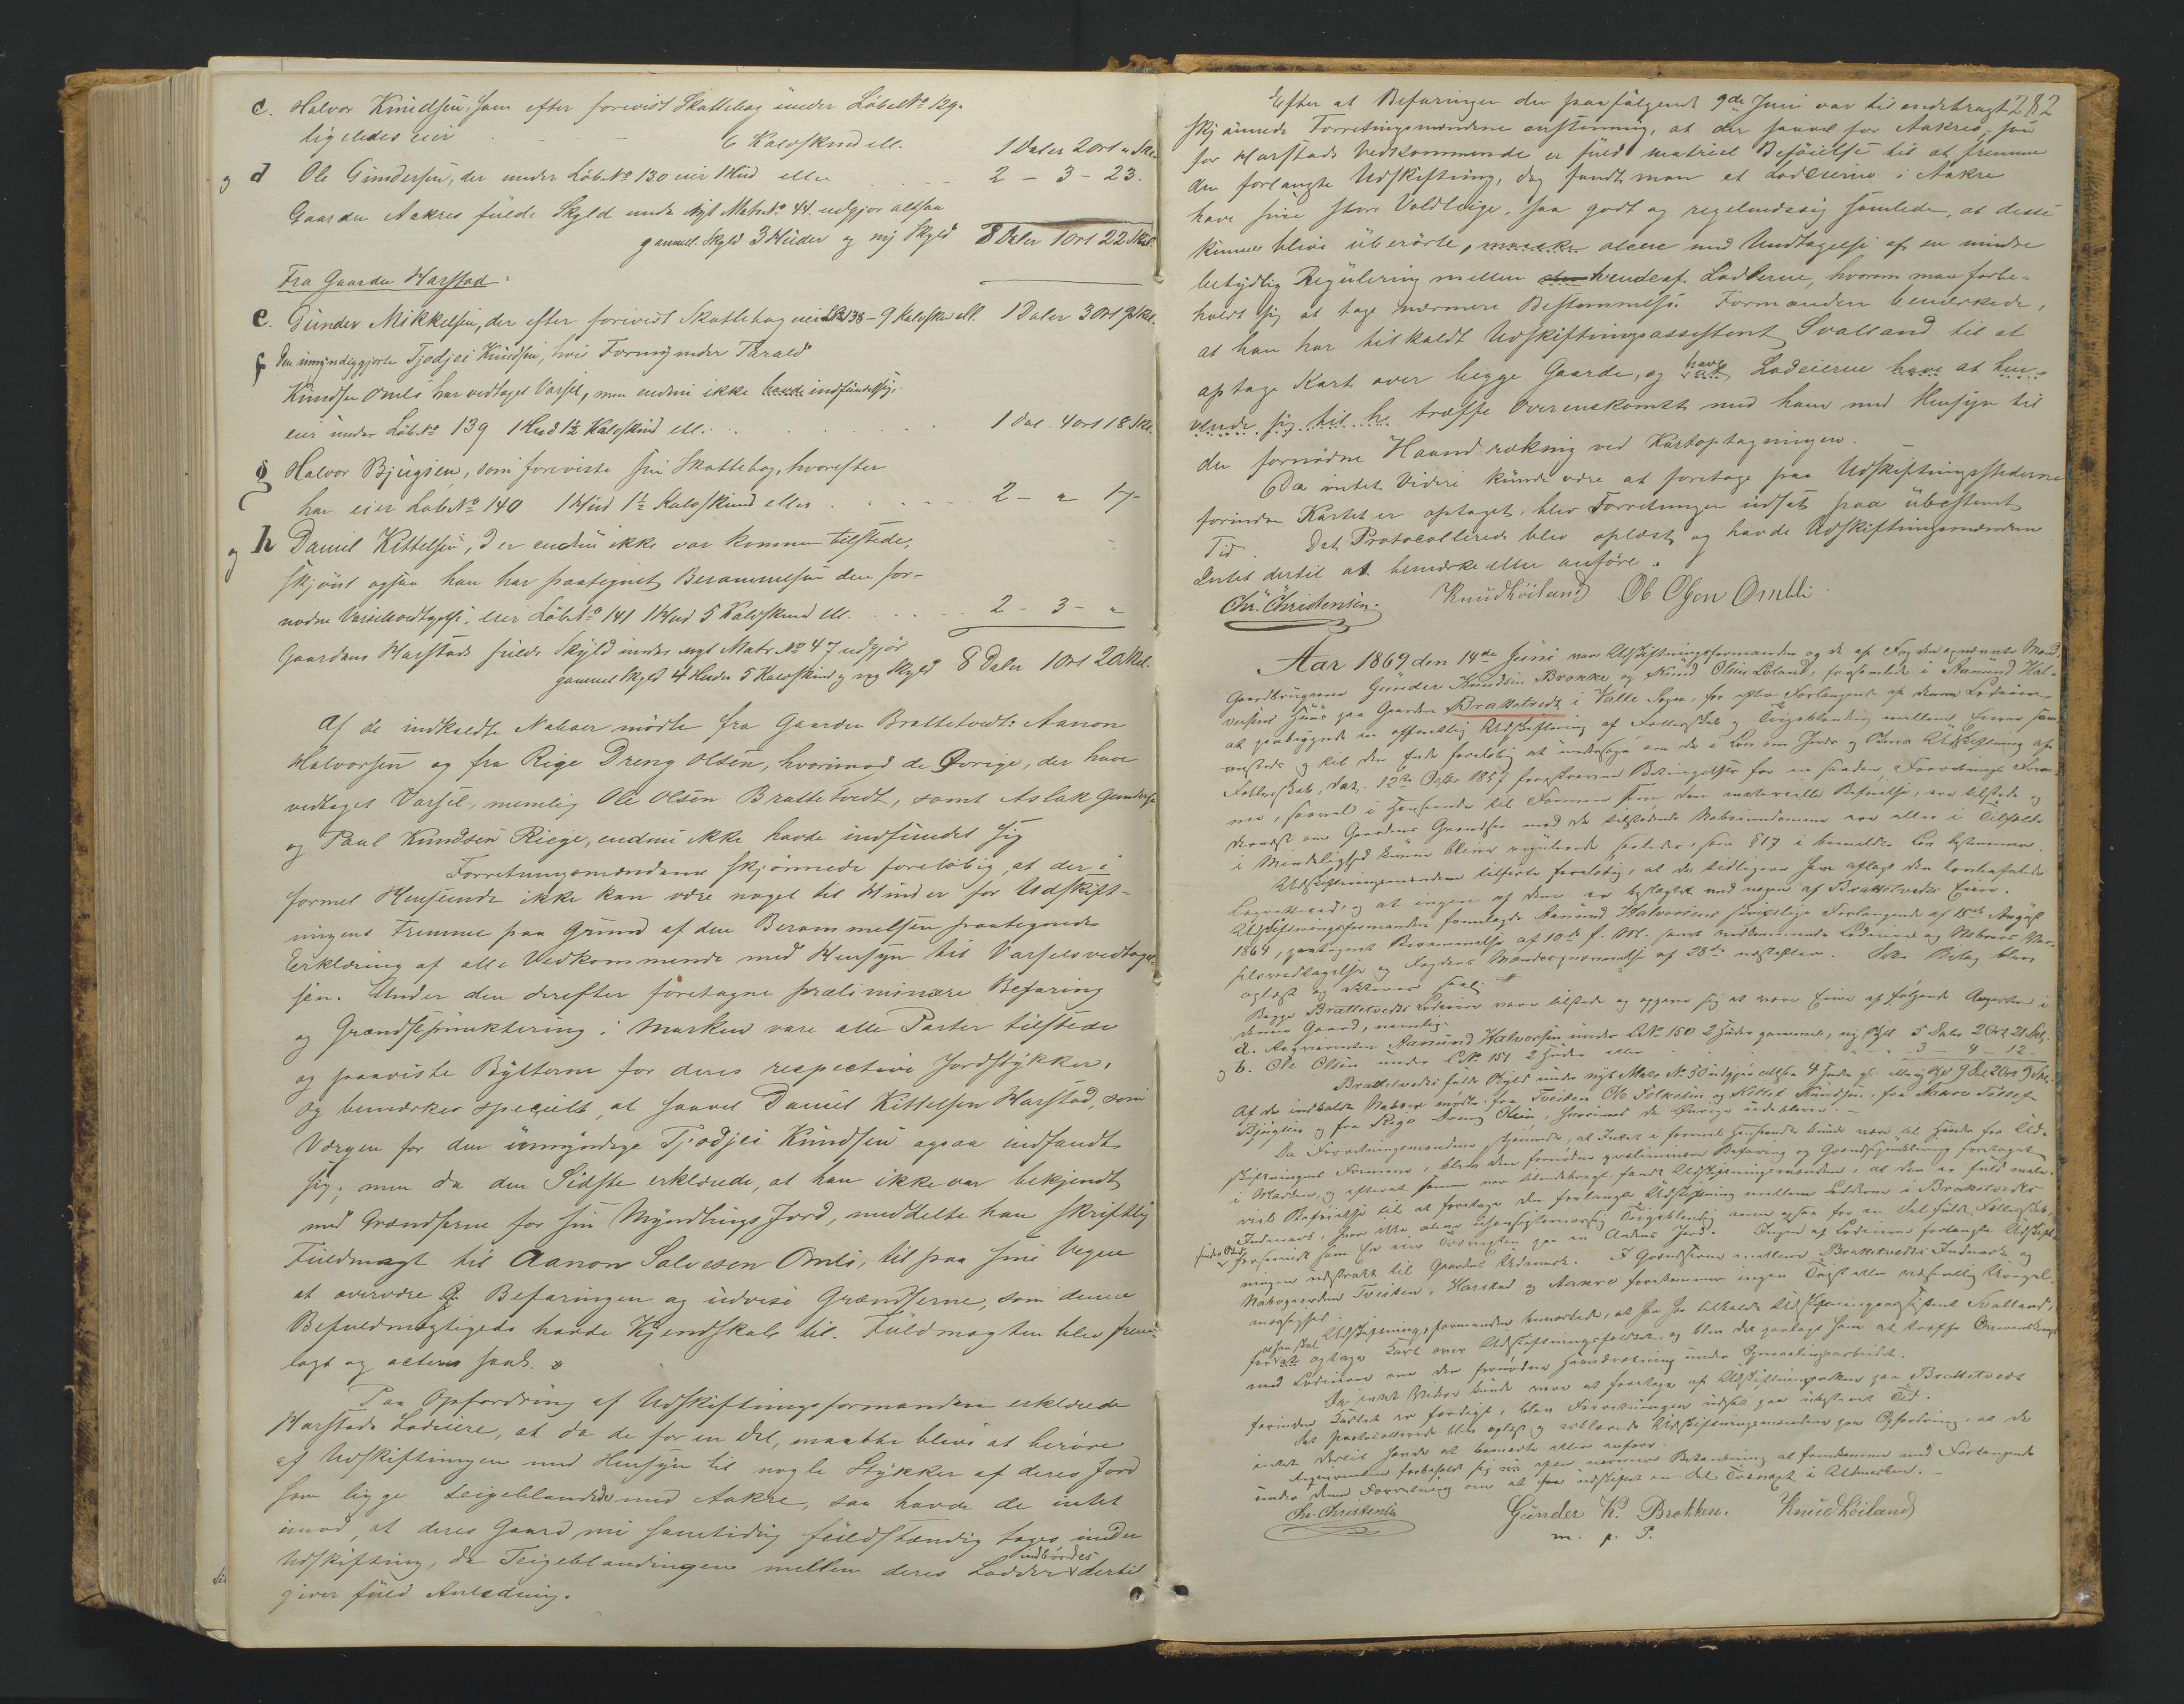 c. Halvor Knudsen, som efter forevist Skattebog under Löbe No 129.
ligeledes eier 6 Kalvskind ell. 1 Daler 2 ort " Skl.
og d Ole Gundersen, der under Löb. No 130 eier 1 Hud eller 2 - 3 - 23.
Gaarden Aakres fulde Skyld under nyt Matr. No 44. udgjör altsaa
gammel Skyld 3 Huder og ny Skyld 8 Daler 1 ort 22 Skil.
Fra Gaarden Harstad:
e. Gunder Mikkelsen, der efter forevist Skattebog eier LNo 138 - 9 Kalvskd ell. 1 Daler 3 Ort 9 Skl.
f Den umyndiggjorte Tjodjei Knudsen, hvis Formynder Tarald
Knudsen Omli har vedtaget Varsel, men endnu ikke havde indfundet sig,
eier under Löb. No 139 1 Hud 1½ Kalvskind ell. 1 Dal. 4 ort 18 Skl.
g Halvor Bjugsen, som foreviste sin Skattebog, hvorefter
han eier Löb No 140 1 Hud 1½ Kalvskind eller 2 - " 17 -
og h Daniel Kittelsen, der endnu ikke var kommen tilstede,
skjönt ogsaa han har paategnet Berammelsen den for-
nødne Varselsvedtagelse, eier Löb. No 141 1 Hud 5 Kalvskind ell. 2 - 3 - "
Gaardens Harstads fulde Skyld under nyt Matr. No 47 udgjör
gammel Skyld 4 Huder 5 Kalvskind og ny Skyld 8 Daler 1 Ort 20 Skil.
Af de indkaldte Naboer mödte fra Gaarden Brattetvedt: Aanon
Halvorsen og fra Rige Dreng Olsen, hvorimod de Øvrige, der have
vedtaget Varsel, nemlig Ole Olsen Brattetvedt, samt Aslak Gunders
og Paul Knudsen Riege, endnu ikke havde indfundet sig
Forretningsmændene skjönnede foreløbig, at der i
formel Henseende ikke kan være noget til Hinder for Udskift-
ningens Fremme paa Grund af den Berammelsen paategnede
Erklæring af alle Vedkommende med Hensyn til Varselsvedtagel-
sen. Under den derefter foretagne præliminære Befaring
og Grændsepunktering i Marken vare alle Parter tilstede
og paaviste Bytterne for deres respective Jordstykker,
og bemærkes specielt, at saavel Daniel Kittelsen Harstad, som
Værgen for den umyndige Tjodjei Knudsen ogsaa indfandt
sig; men da den Sidste erklærede, at han ikke var bekjendt
med Grændserne for sin Myndlings Jord, meddelte han skriftlig
Fuldmagt til Aanon Salvesen Omli, til paa sine Vegne
at overvære Befaringen og udvise Grændserne, som denne
Befuldmægtigede havde Kjendskab til. Fuldmagten blev frem-
lagt og acteres saal.
Paa Opfordring af Udskiftningsformanden erklærede
Harstads Lodeiere, at da de for en Del, maatte blive at berøre
af Udskiftningen med Hensyn til nogle Stykker af deres Jord
som ligge teigeblandede med Aakre, saa havde de intet
imod, at deres Gaard nu samtidig fuldstændig toges under
Udskiftning, da Teigeblandingen mellem deres Lodder indbördes dertil
giver fuld Anledning.
282
Efter at Befaringen den paafölgende 9de Juni var tilendebragt
skjönnede Forretningsmændene enstemmig, at der saavel for Aakres, som
for Harstads Vedkommende er fuld materiel Beföielse til at fremme
den forlangte Udskiftning, dog fandt man at Lodeierne i Aakre
have sine store Voldteige, saa godt og regelmæssig samlede, at disse
kunne blive uberörte, maaske alene med Undtagelse af en mindre
betydlig Regulering mellem hvende af Lodderne, hvorom man forbe-
holdt sig at tage nærmere Bestemmelse. Formanden bemærkede,
at han har tilkaldt Udskiftningsassistent Svalland til at
optage Kart over begge Gaarde, og have Lodeierne have at hen-
vende sig til h. træffe Overenskomst med ham med Hensyn til
den fornødne Haandrækning ved Kartoptagningen.
Da intet Videre kunde være at foretage paa Udskiftningsstederne
forinden Kartet er optaget, blev Forretningen udsat paa ubestemt
Tid. Det Protocollerede blev oplæst og havde Udskiftningsmændene
Intet dertil at bemærke eller anføre.
Chr. Christensen. Knud Höiland Ole Olsen Omli.
Aar 1869 den 14de Juni var Udskiftningsformanden og de af Fogden opnævnte Mænd,
Gaardbrugerne Gunder Knudsen Brokke og Knud Olsen Löland, forsamlede i Aanund Hal-
versens Huus paa Gaarden Brattetvedt i Valle Sogn, for efter Forlangende af denne Lodeier
at paabegynde en offentlig Udskiftning af Fællesskab og Teigeblanding mellem Eierne sam-
mesteds og til den Ende foreløbig at undersøge om de i Lov om Jords og Skovs Udskiftning af
Fællesskab, dat. 12te Octbr 1857 foreskrevne Betingelser for en saadan Forretnings Frem-
me, saavel i Henseende til Formen som den materielle Beföielse, ere tilstede og
dernæst om Gaardens Grændser mod de tilstødende Naboeiendomme ere eller i Tilfælde
i Mindelighed kunne blive regulerede saaledes, som § 17 i bemeldte Lov bestemmer.
Udskiftningsmændene tilførte foreløbig, at de tidligere have aflagt den lovbefalede
Lagretteseed, og at ingen af dem er beslægtet med nogen af Brattetvedts Eiere.
Udskiftningsformanden fremlagde Aanund Halvorsens skriftlige Forlangende af 15de August
1864, paategnet Berammelse af 10de f. M. samt vedkommende Lodeieres og Naboers Var-
selsvedtagelse og Fogdens Mændsopnævnelse af 28de næstefter. Dette Bilag blev
oplæst og acteres saal.
Begge Brattetvedts Lodeiere vare tilstede og opgave sig at være Eiere af følgende Anparter i
denne Gaard, nemlig:
a. Reqvirenten Aanund Halvorsen under LNo 150 2 Huder gammel, ny Skyld 5 Daler 2 Ort 21 Skl.
og b. Ole Olsen under LNo 151 2 Huder eller 3 - 4 - 12 -
Brattetvedts fulde Skyld under nyt Matr. No 50 udgjör altsaa 4 Huder gl. eller ny Skyld 9 Dal. 2 Ort 9 Skl.
Af de indkaldte Naboer mødte: fra Tveiten Ole Folkesen og Kittel Knudsen, fra Aakre Tollef
Bjugsen og fra Rige Dreng Olsen, hvorimod de Øvrige udebleve.-
Da Forretningsmændene skjønnede, at Intet i formel Henseende kunde være til Hinder for Ud-
skiftningens Fremme, blev den fornødne præliminære Befaring og Grændsepunktering foretaget
i Marken, og efterat samme var tilendebragt fandt Udskiftningsmændene, at der er fuld mate-
riel Beföielse til at foretage den forlangte Udskiftning mellem Lodderne i Brattetvedts
Indmark, hvor ikke alene uhensigtsmæssig Teigeblanding men ogsaa for en Del fuldt Fællesskab
finder Sted, forsaavidt som En eier Træværgten paa en Andens Jord. Ingen af Lodeierne forlangte Udskift-
ningen udstrakt til Gaardens Udmark. I Grændserne mellem Brattetvedts Indmark og
Nabogaardene Tveiten, Harstad og Aakre forekommer ingen Tvist eller væsentlig Uregel-
mæssighed.
Udskiftningsformanden bemærkede, at han har tilkaldt Udskiftningsassistent Svalland,
for at han skal optage Kart over Udskiftningsfeltet, og blev det paalagt ham at træffe Overenskomst
med Lodeierne om den fornødne Haandrækning under Opmaalingsarbeidet.
Da intet Videre kunde være at foretage af Udskiftningsretten paa Brattetvedt
forinden Kartet er færdigt, blev Forretningen udsat paa ubestemt Tid.
Det Protocollerede blev oplæst og erklærede Udskiftningsmændene paa Opfordring, at de
intet dertil havde at bemærke eller anføre.
Reqvirenten forbeholdt sig efter nærmere Betænkning at fremkomme med Forlangende
under denne Forretning om at faa udskiftet en Del Træværgt i Udmarken.-
Chr. Christensen Gunder K. Brokken. Knud Höiland
m. p. P.